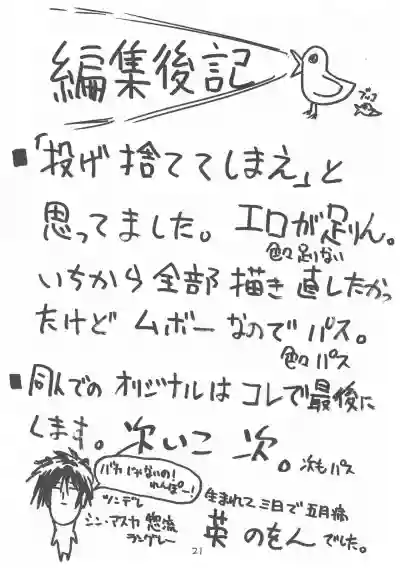 編集後記
■「投げ捨ててしまえ」と
思ってました。エロが足りん。
色々足りない
いちから全部描き直したかっ
たけどムボーなのでパス。
色々パス
■同人でのオリジナルはコレで最後に
します。次いこ次。次もパス
バカじゃないの!
れんぽー!
ツンデレ
シン・アスカ惣流
ラングレー
生まれて三日で五月病
英のをんでした。
21